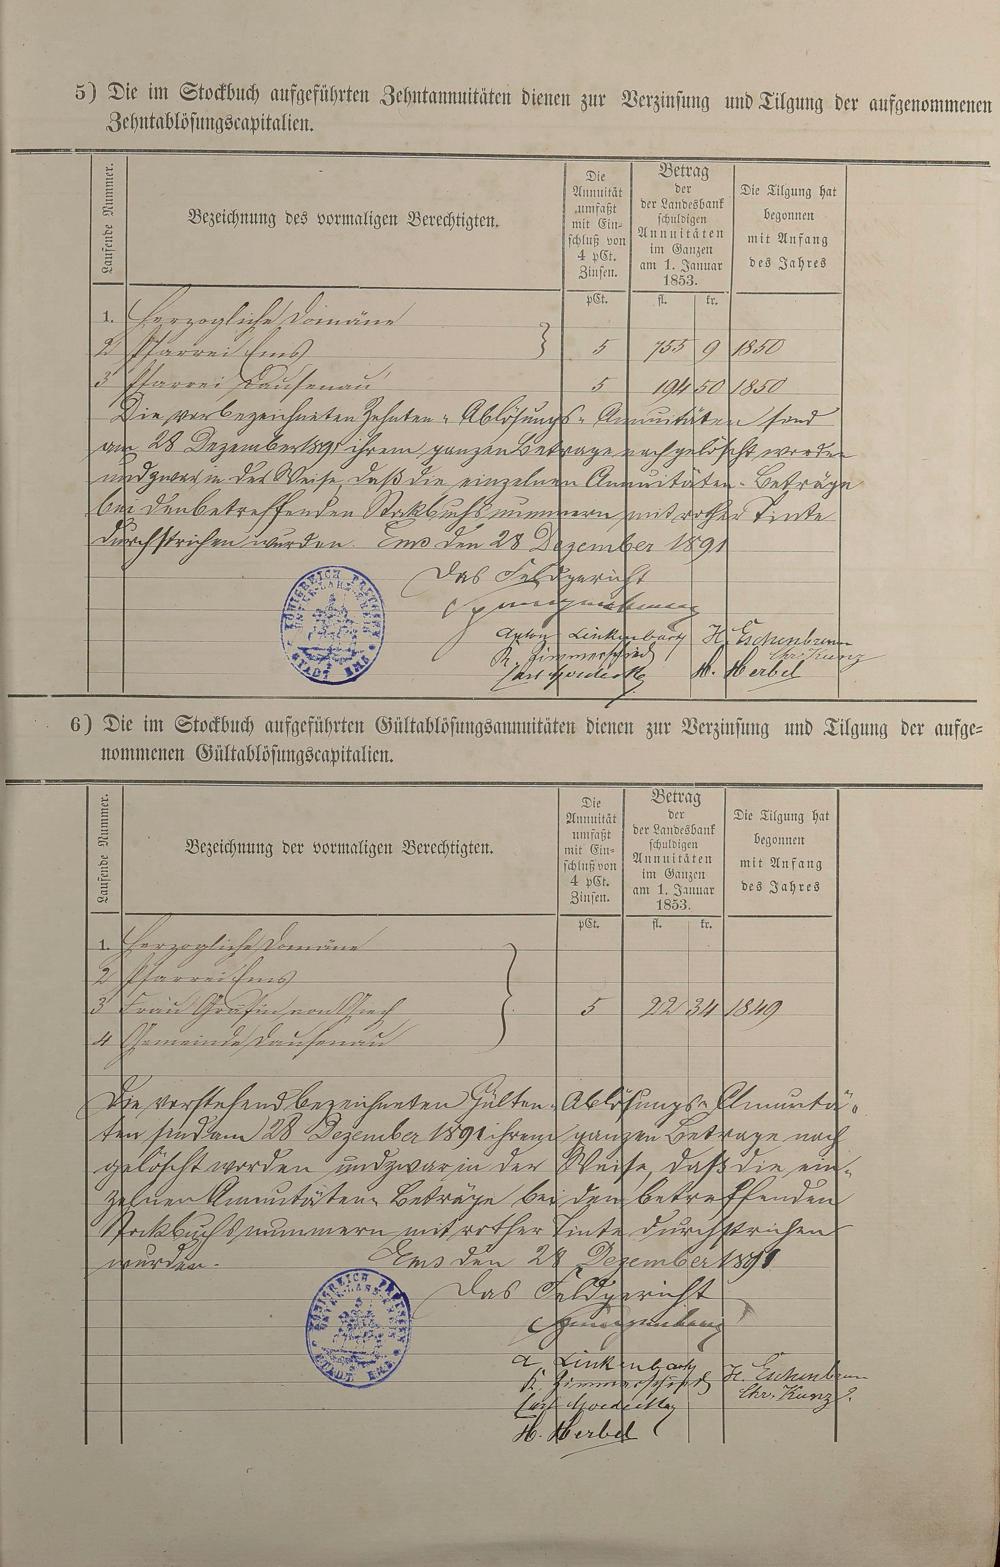 5) Die im Stockbuch aufgeführten Zehntannuitäten dienen zur Verzinsung und Tilgung der aufgenommenen
Zehntablösungscapitalien.
Laufende Nummer.
Bezeichnung des vormaligen Berechtigten.
Die
Annuität
umfaßt
mit Ein-
schluß von
4 pCt.
Zinsen.
Betrag
der
der Landesbank
schuldigen
Annuitäten
im Ganzen
am 1. Januar
1853.
Die Tilgung hat
begonnen
mit Anfang
des Jahres
pCt. fl. kr.
1. Herzogliche Domäne
2 Pfarrei Ems 5 755 9 1850
3 Pfarrei Dausenau 5 194 50 1850
Die vorbezeichneten Zehnten-Ablösungs-Annuitäten sind
am 28 Dezember 1891 ihrem ganzen Betrage nach gelöscht worden
und zwar in der Weise, daß die einzelnen Annuitäten-Beträge
bei den betreffenden Stockbuchsnummern mit rother Tinte
durchstrichen wurden. Ems den 28 Dezember 1891
Das Feldgericht
Anton Linkenbach H. Eschenbrenn
K. Zimmerschied Chr. Kunz
Carl H. Herbel
KÖNIGREICH PREUSSEN
UNTER-LAHN-KREIS
STADT EMS
6) Die im Stockbuch aufgeführten Gültablösungsannuitäten dienen zur Verzinsung und Tilgung der aufge-
nommenen Gültablösungscapitalien.
Laufende Nummer.
Bezeichnung der vormaligen Berechtigten.
Die
Annuität
umfaßt
mit Ein-
schluß von
4 pCt.
Zinsen.
Betrag
der
der Landesbank
schuldigen
Annuitäten
im Ganzen
am 1. Januar
1853.
Die Tilgung hat
begonnen
mit Anfang
des Jahres
pCt. fl. kr.
1. Herzogliche Domäne
2 Pfarrei Ems
3 Frau Gräfin von Giech 5 22 34 1849
4 Gemeinde Dausenau
Die vorstehend bezeichneten Gülten-Ablösungs-Annuitä-
ten sind am 28 Dezember 1891 ihrem ganzen Betrage nach
gelöscht worden und zwar in der Weise, daß die ein-
zelnen Annuitäten-Beträge bei den betreffenden
Stockbuchsnummern mit rother Tinte durchstrichen
wurden. Ems den 28 Dezember 1891
Das Feldgericht
A. Linkenbach
K. Zimmerschied H. Eschenbrenn
Carl Chr. Kunz
H. Herbel
KÖNIGREICH PREUSSEN
UNTER-LAHN-KREIS
STADT EMS